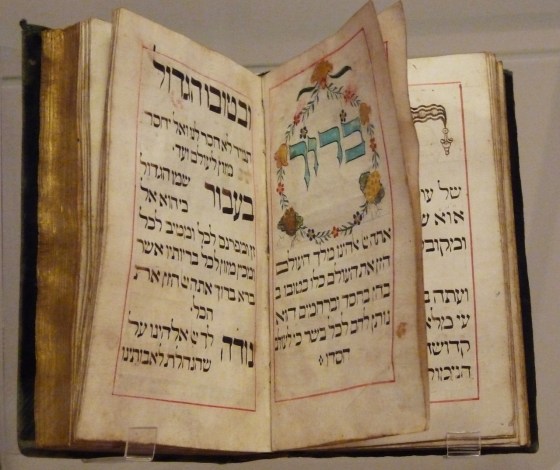 של
ועתה
ברוך
אתה יי אלהינו מלך העולם
הזן את העולם כלו בטובו ב
בחן בחסד וברחמים הוא
נותן לחם לכל בשר כי לעולם
חסדו
ובטובו הגדול
תמיד לא חסר לנו ואל יחסר
לנו מזון לעולם ועד.
בעבור שמו הגדול
כי הוא אל
זן ומפרנס לכל ומטיב לכל
ומכין מזון לכל בריותיו אשר
ברא ברוך אתה יי הזן את
הכל.
נודה לך יי אלהינו על
שהנחלת לאבותינו